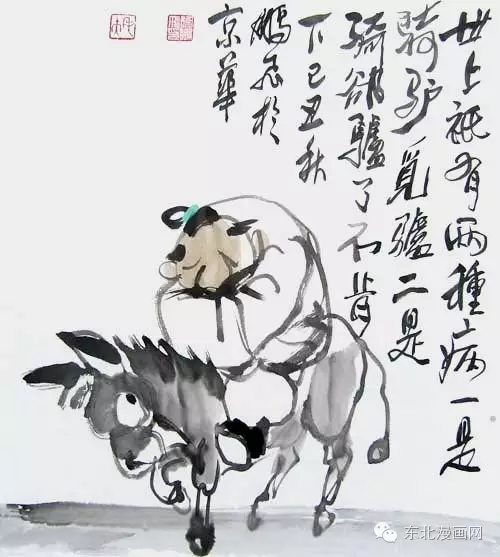 世上祇有兩種病一是
騎驴覓驢二是
騎卻驢了不肯
下己丑秋
鵬飛於
京華
东北漫画网